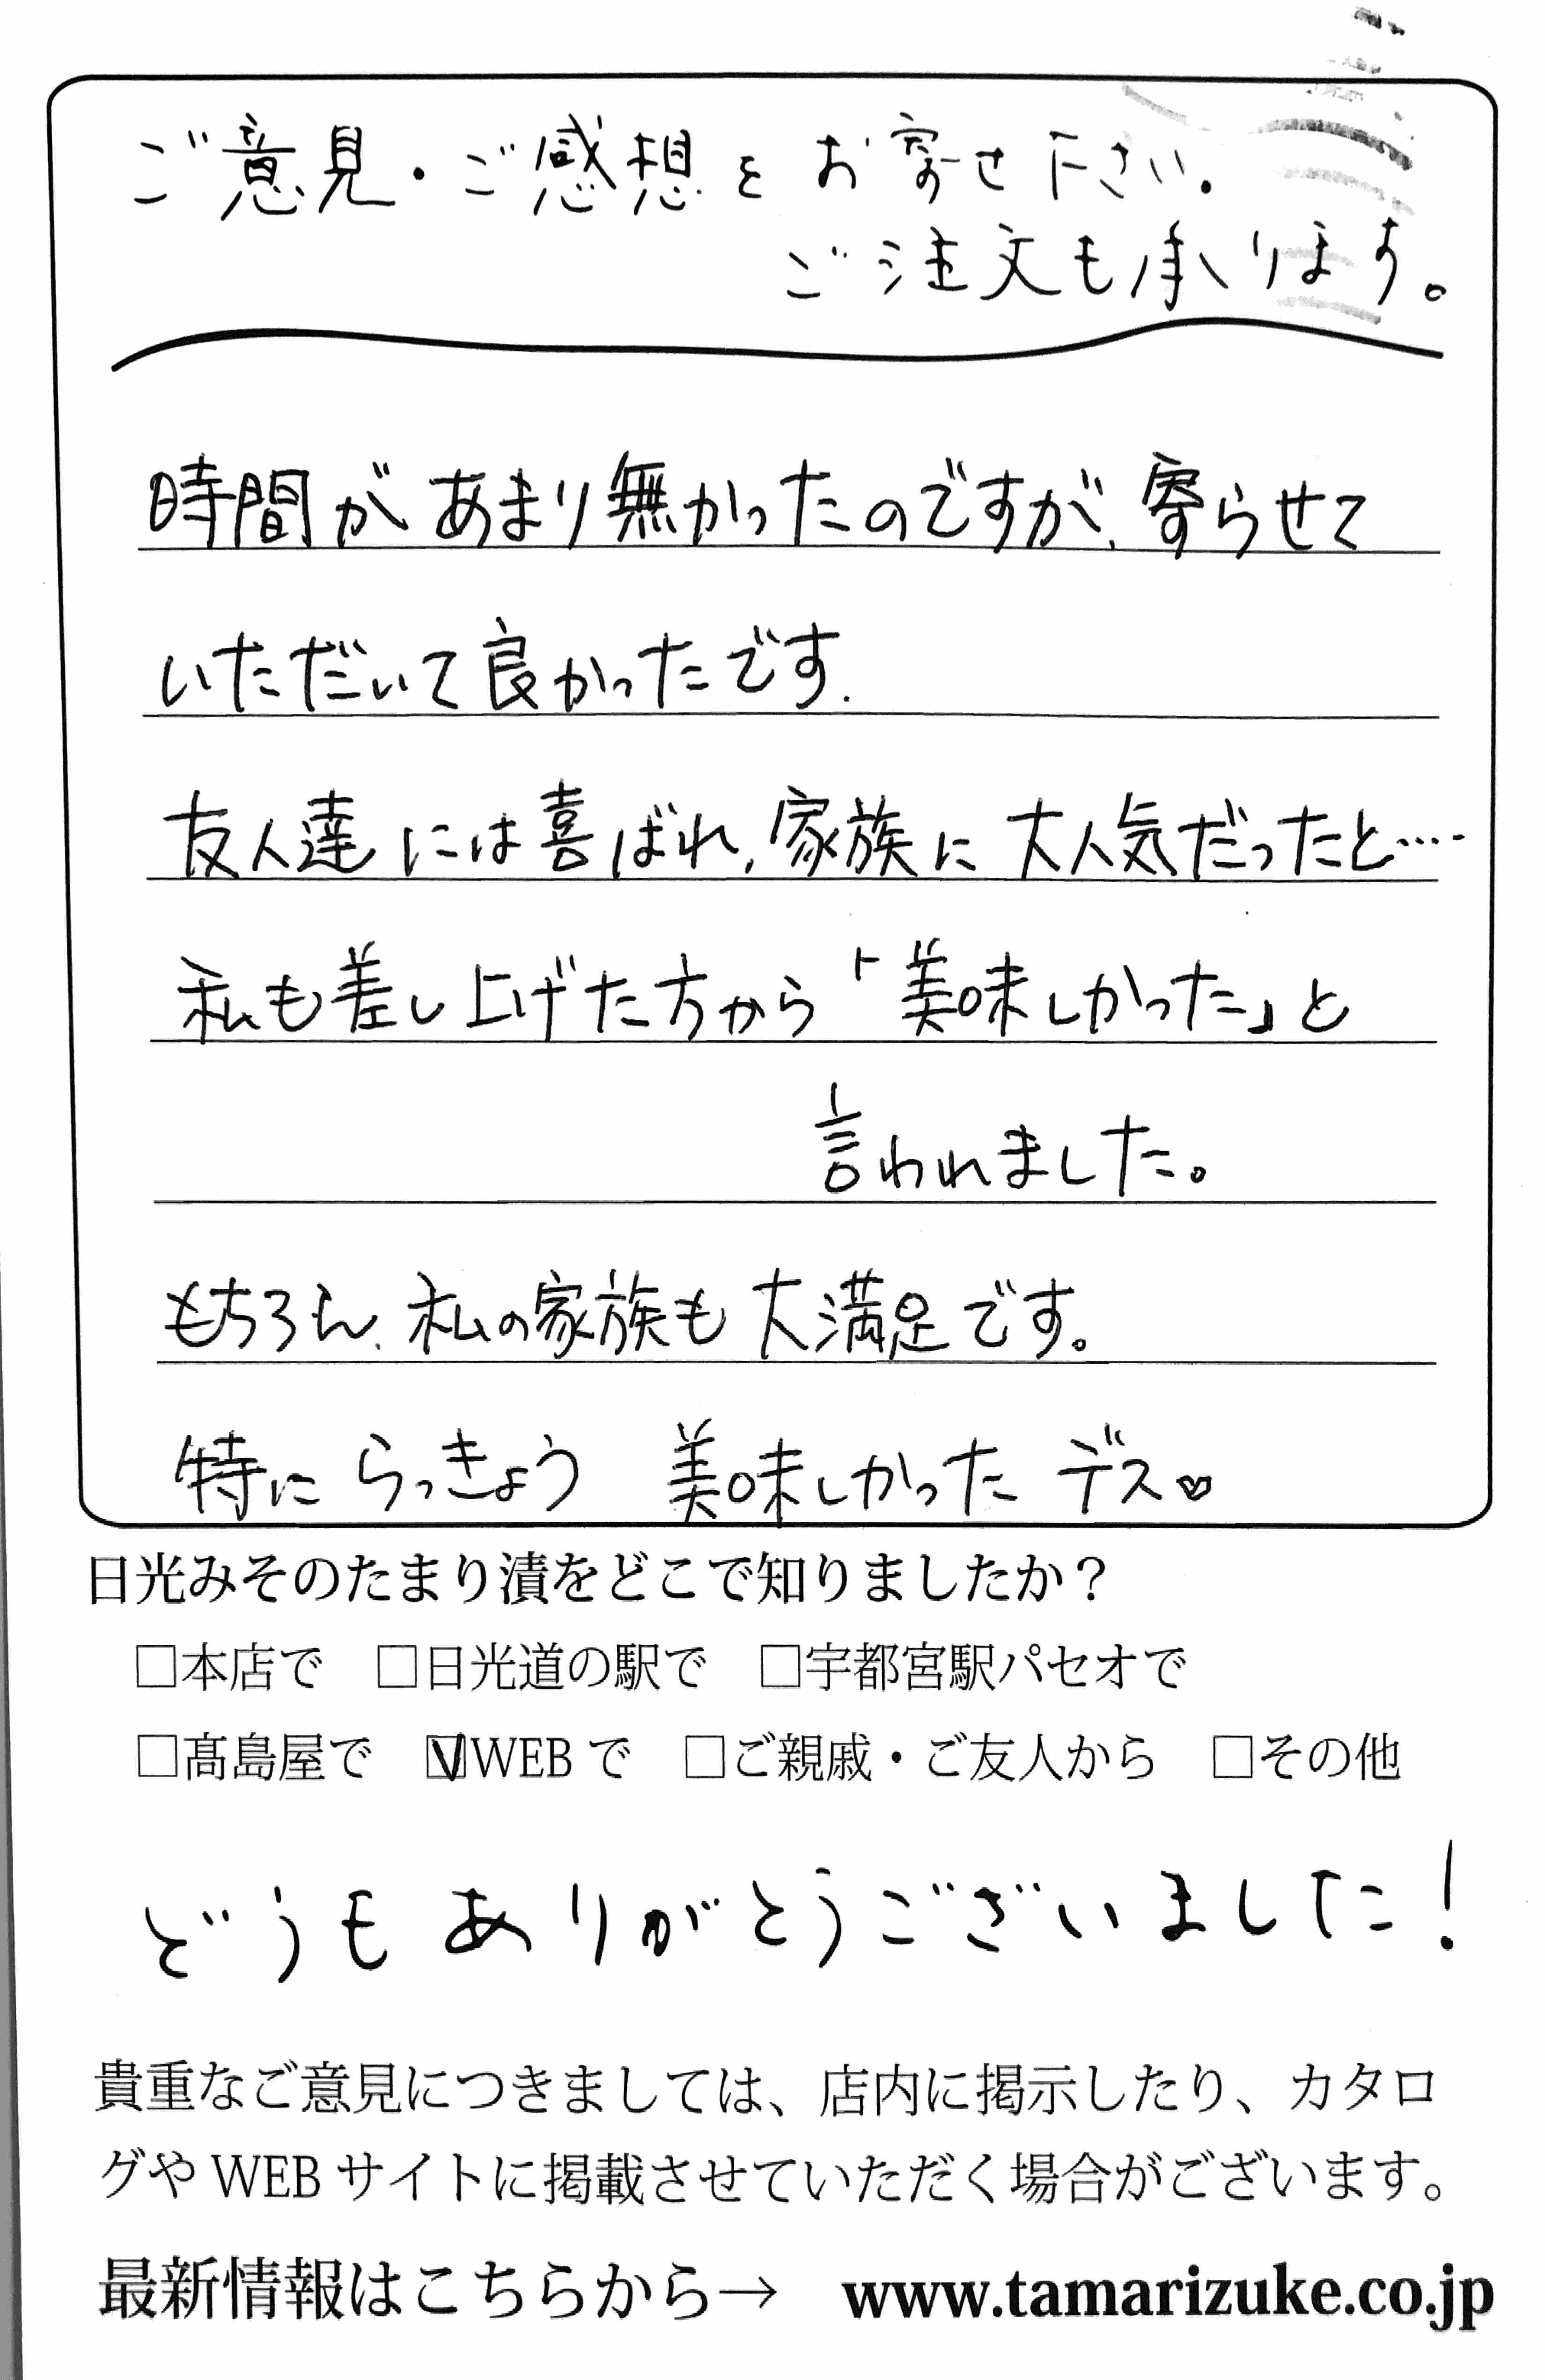 ご意見・ご感想をお寄せ下さい.
ご注文も承ります。
時間があまり無かったのですが、寄らせて
いただいて良かったです.
友人達には喜ばれ,家族に大人気だったと‥‥
私も差し上げた方から「美味しかった」と
言われました。
もちろん、私の家族も大満足です。
特にらっきょう 美味しかったデス♡
日光みそのたまり漬をどこで知りましたか？
□本店で □日光道の駅で □宇都宮駅パセオで
□髙島屋で ☑WEBで □ご親戚・ご友人から □その他
どうもありがとうございました！
貴重なご意見につきましては、店内に掲示したり、カタロ
グやWEBサイトに掲載させていただく場合がございます。
最新情報はこちらから→ www.tamarizuke.co.jp